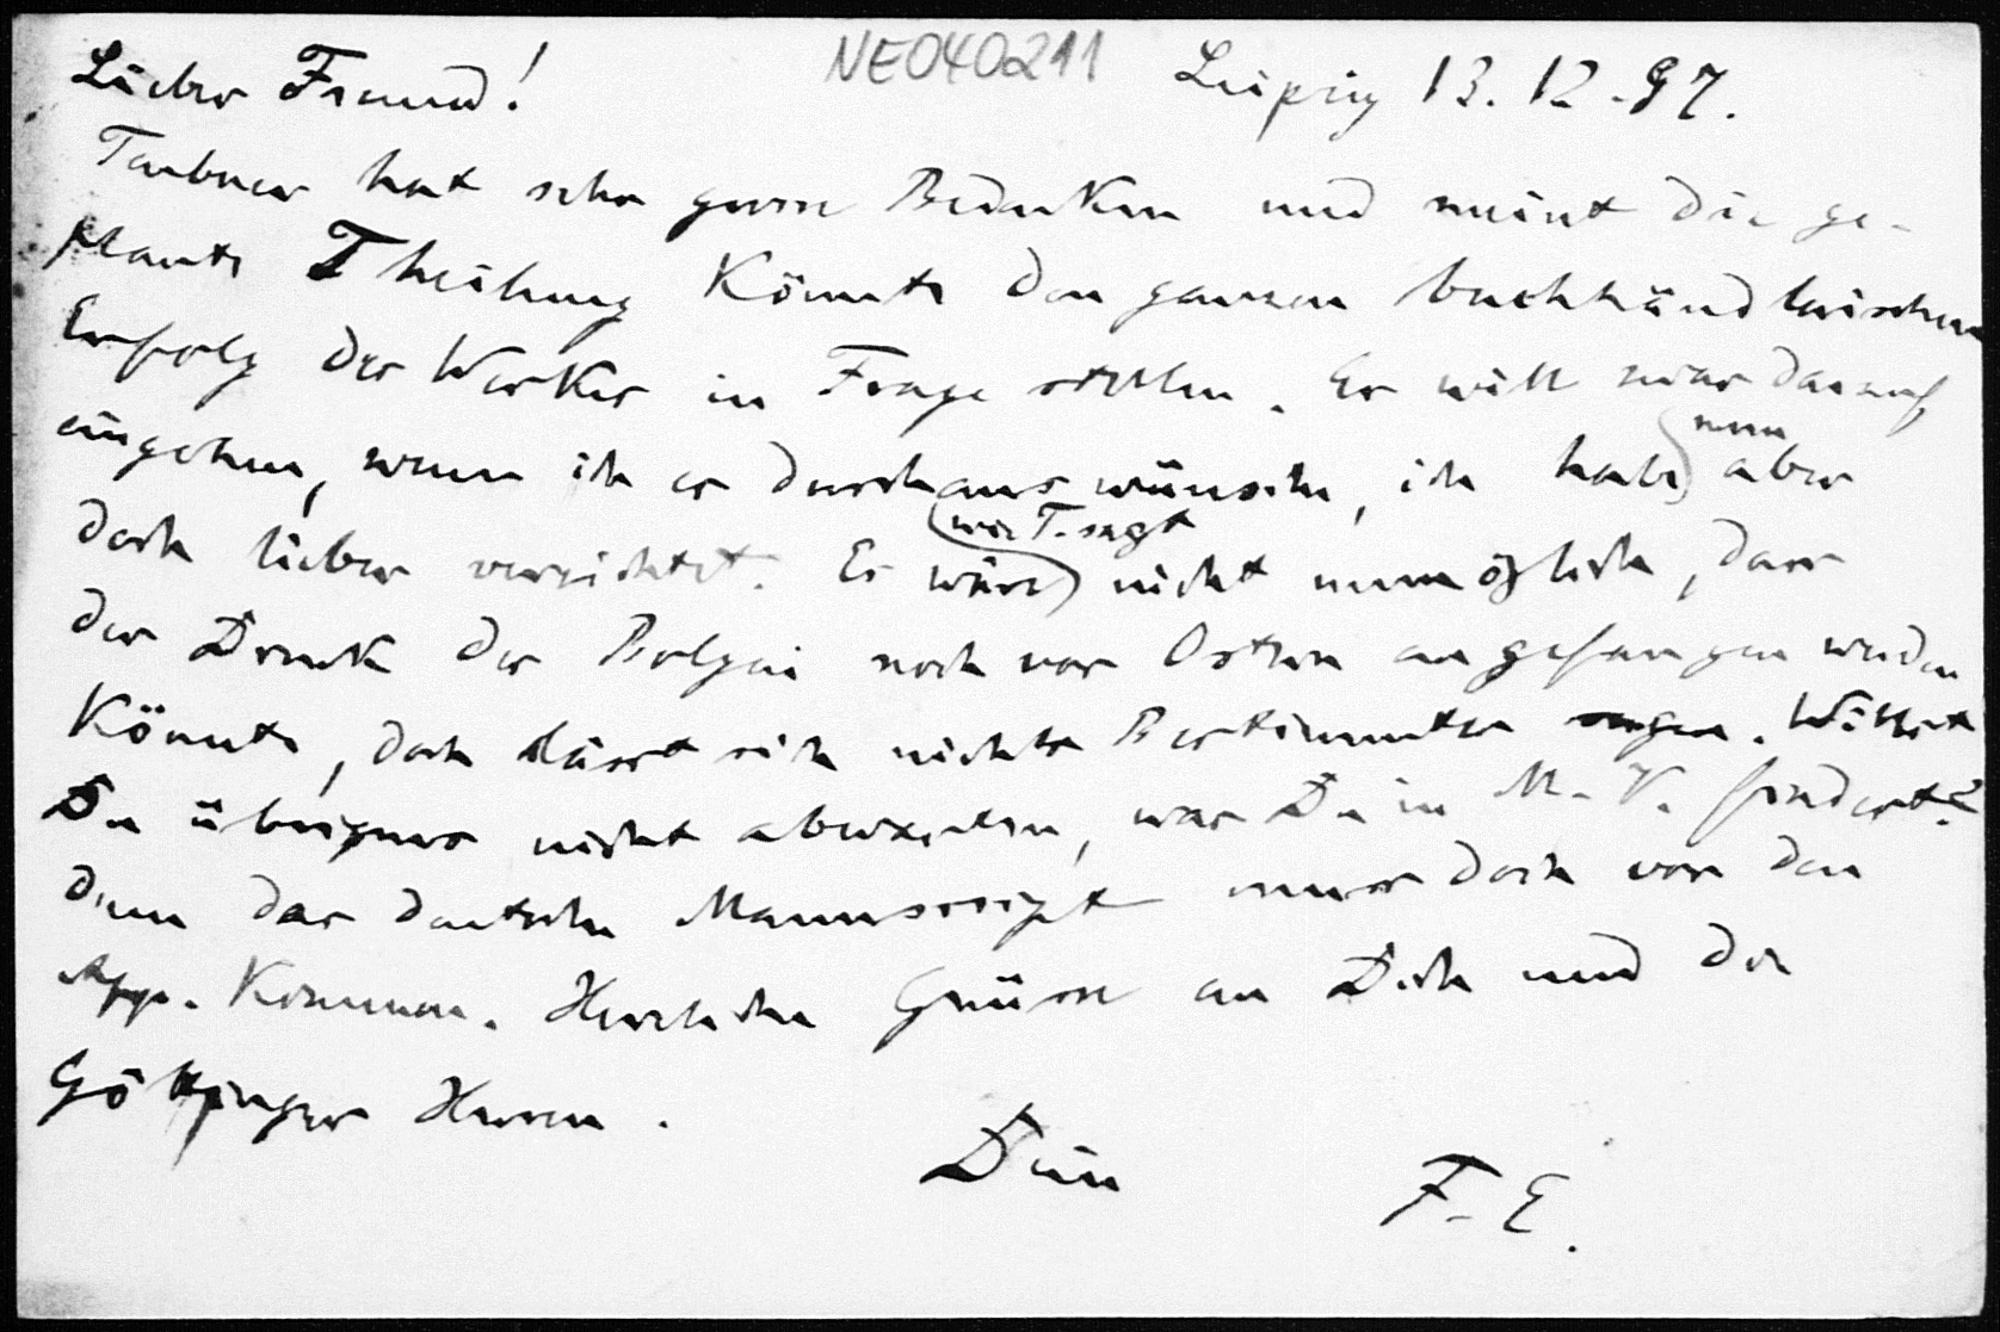 NE040211
Lieber Freund! Leipzig 13. 12. 97.
Teubner hat sehr grosse Bedenken und meint die ge-
plante Theilung könnte den ganzen buchhändlerischen
Erfolg des Werkes in Frage stellen. Er will zwar darauf
eingehen, wenn ich es durchaus wünsche, ich habe nun aber
doch lieber verzichtet. Es wäre wie T. sagt nicht unmöglich, dass
der Druck der Bolyai noch vor Ostern angefangen werden
könnte, doch lässt sich nichts Bestimmtes sagen. Willst
Du übrigens nicht abwarten, was Du in M. V. findest?
denn das deutsche Manuscript muss doch vor den
App. kommen. Herzliche Grüsse an Dich und die
Göttinger Herren.
Dein F. E.